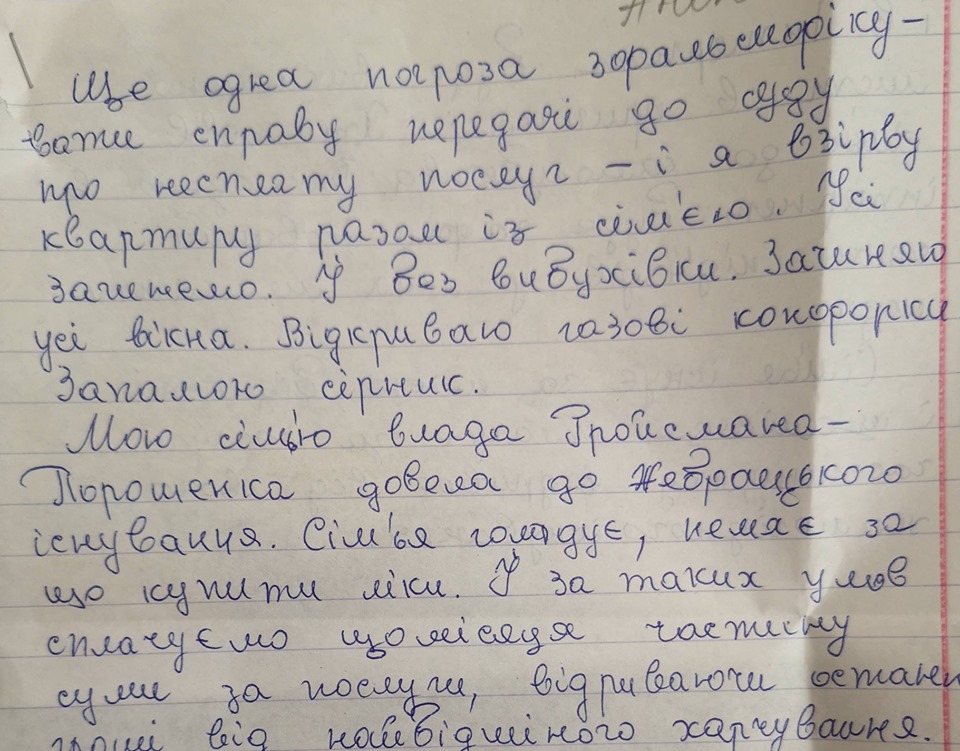 Ще одна погроза зоральсморіку-
вати справу передачі до суду
про несплату послуг – і я взірву
квартиру разом із сім'єю. Усі
загинемо. Й без вибухівки. Зачиняю
усі вікна. Відкриваю газові конфорки
Запалюю сірник.
Мою сім'ю влада Гройсмана-
Порошенка довела до жебрацького
існування. Сім'ья голодує, немає за
що купити ліки. Й за таких умов
сплачуємо щомісяця частину
суми за послуги, відриваючи останні
гроші від найбіднішого харчування.